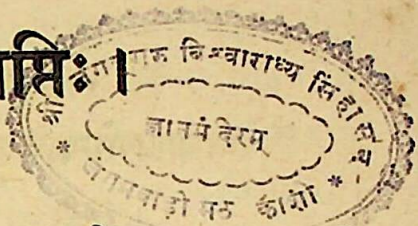 प्तिः ।
श्री जगद्गुरु विश्वाराध्य सिंहासन
ज्ञानमंदिरम्
* जंगमवाड़ी मठ काशी *